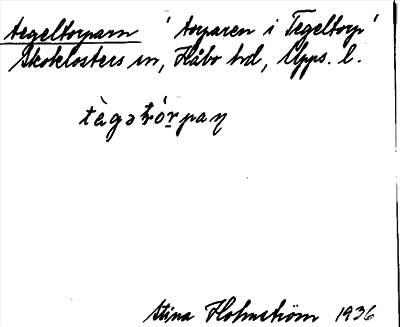 tegeltorparn ' torparen i Tegeltorp'
Skoklosters sn, Håbo hd, Upps. l.
tègətórpaɳ
Stina Holmström 1936